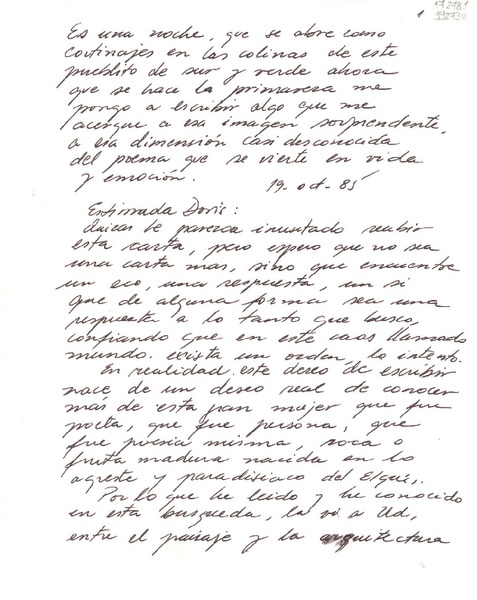 1
Es una noche, que se abre como
cortinajes en las colinas de este
pueblito de sur y verde ahora
que se hace la primavera me
pongo a escribir algo que me
acerque a esa imagen sorprendente,
a esa dimensión casi desconocida
del poema que se vierte en vida
y emoción. 19. oct - 85
Estimada Doris:
Quizas le parezca inusitado recibir
esta carta, pero espero que no sea
una carta mas, sino que encuentre
un eco, una respuesta, un si
que de alguna forma sea una
respuesta a lo tanto que busco,
confiando que en este caos llamado
mundo. exista un orden, lo intento.
En realidad este deseo de escribir
nace de un deseo real de conocer
más de esta gran mujer que fue
poeta, que fue persona, que
fue poesia misma, roca o
fruta madura nacida en lo
agreste y paradisiaco del Elqui,.
Por lo que he leido y he conocido
en esta busqueda, la vi a Ud,
entre el paisaje y la arquitectura